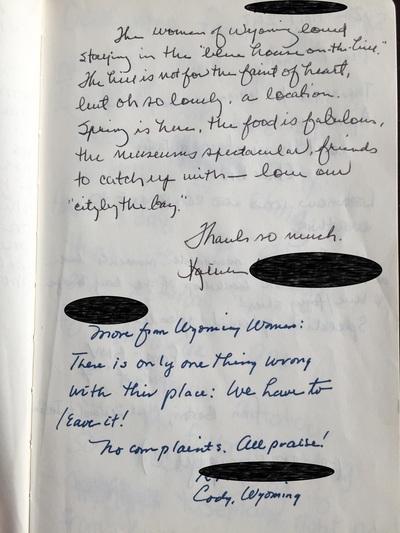 The women of Wyoming loved
staying in the "blue house on-the-hill."
The hill is not for the faint of heart,
but oh so lovely, a location.
Spring is here, the food is fabulous,
the museums spectacular, friends
to catch up with— love our
"city by the bay."
Thanks so much.
More from Wyoming Women:
There is only one thing wrong
with this place: We have to
leave it!
No complaints. All praise!
Cody, Wyoming